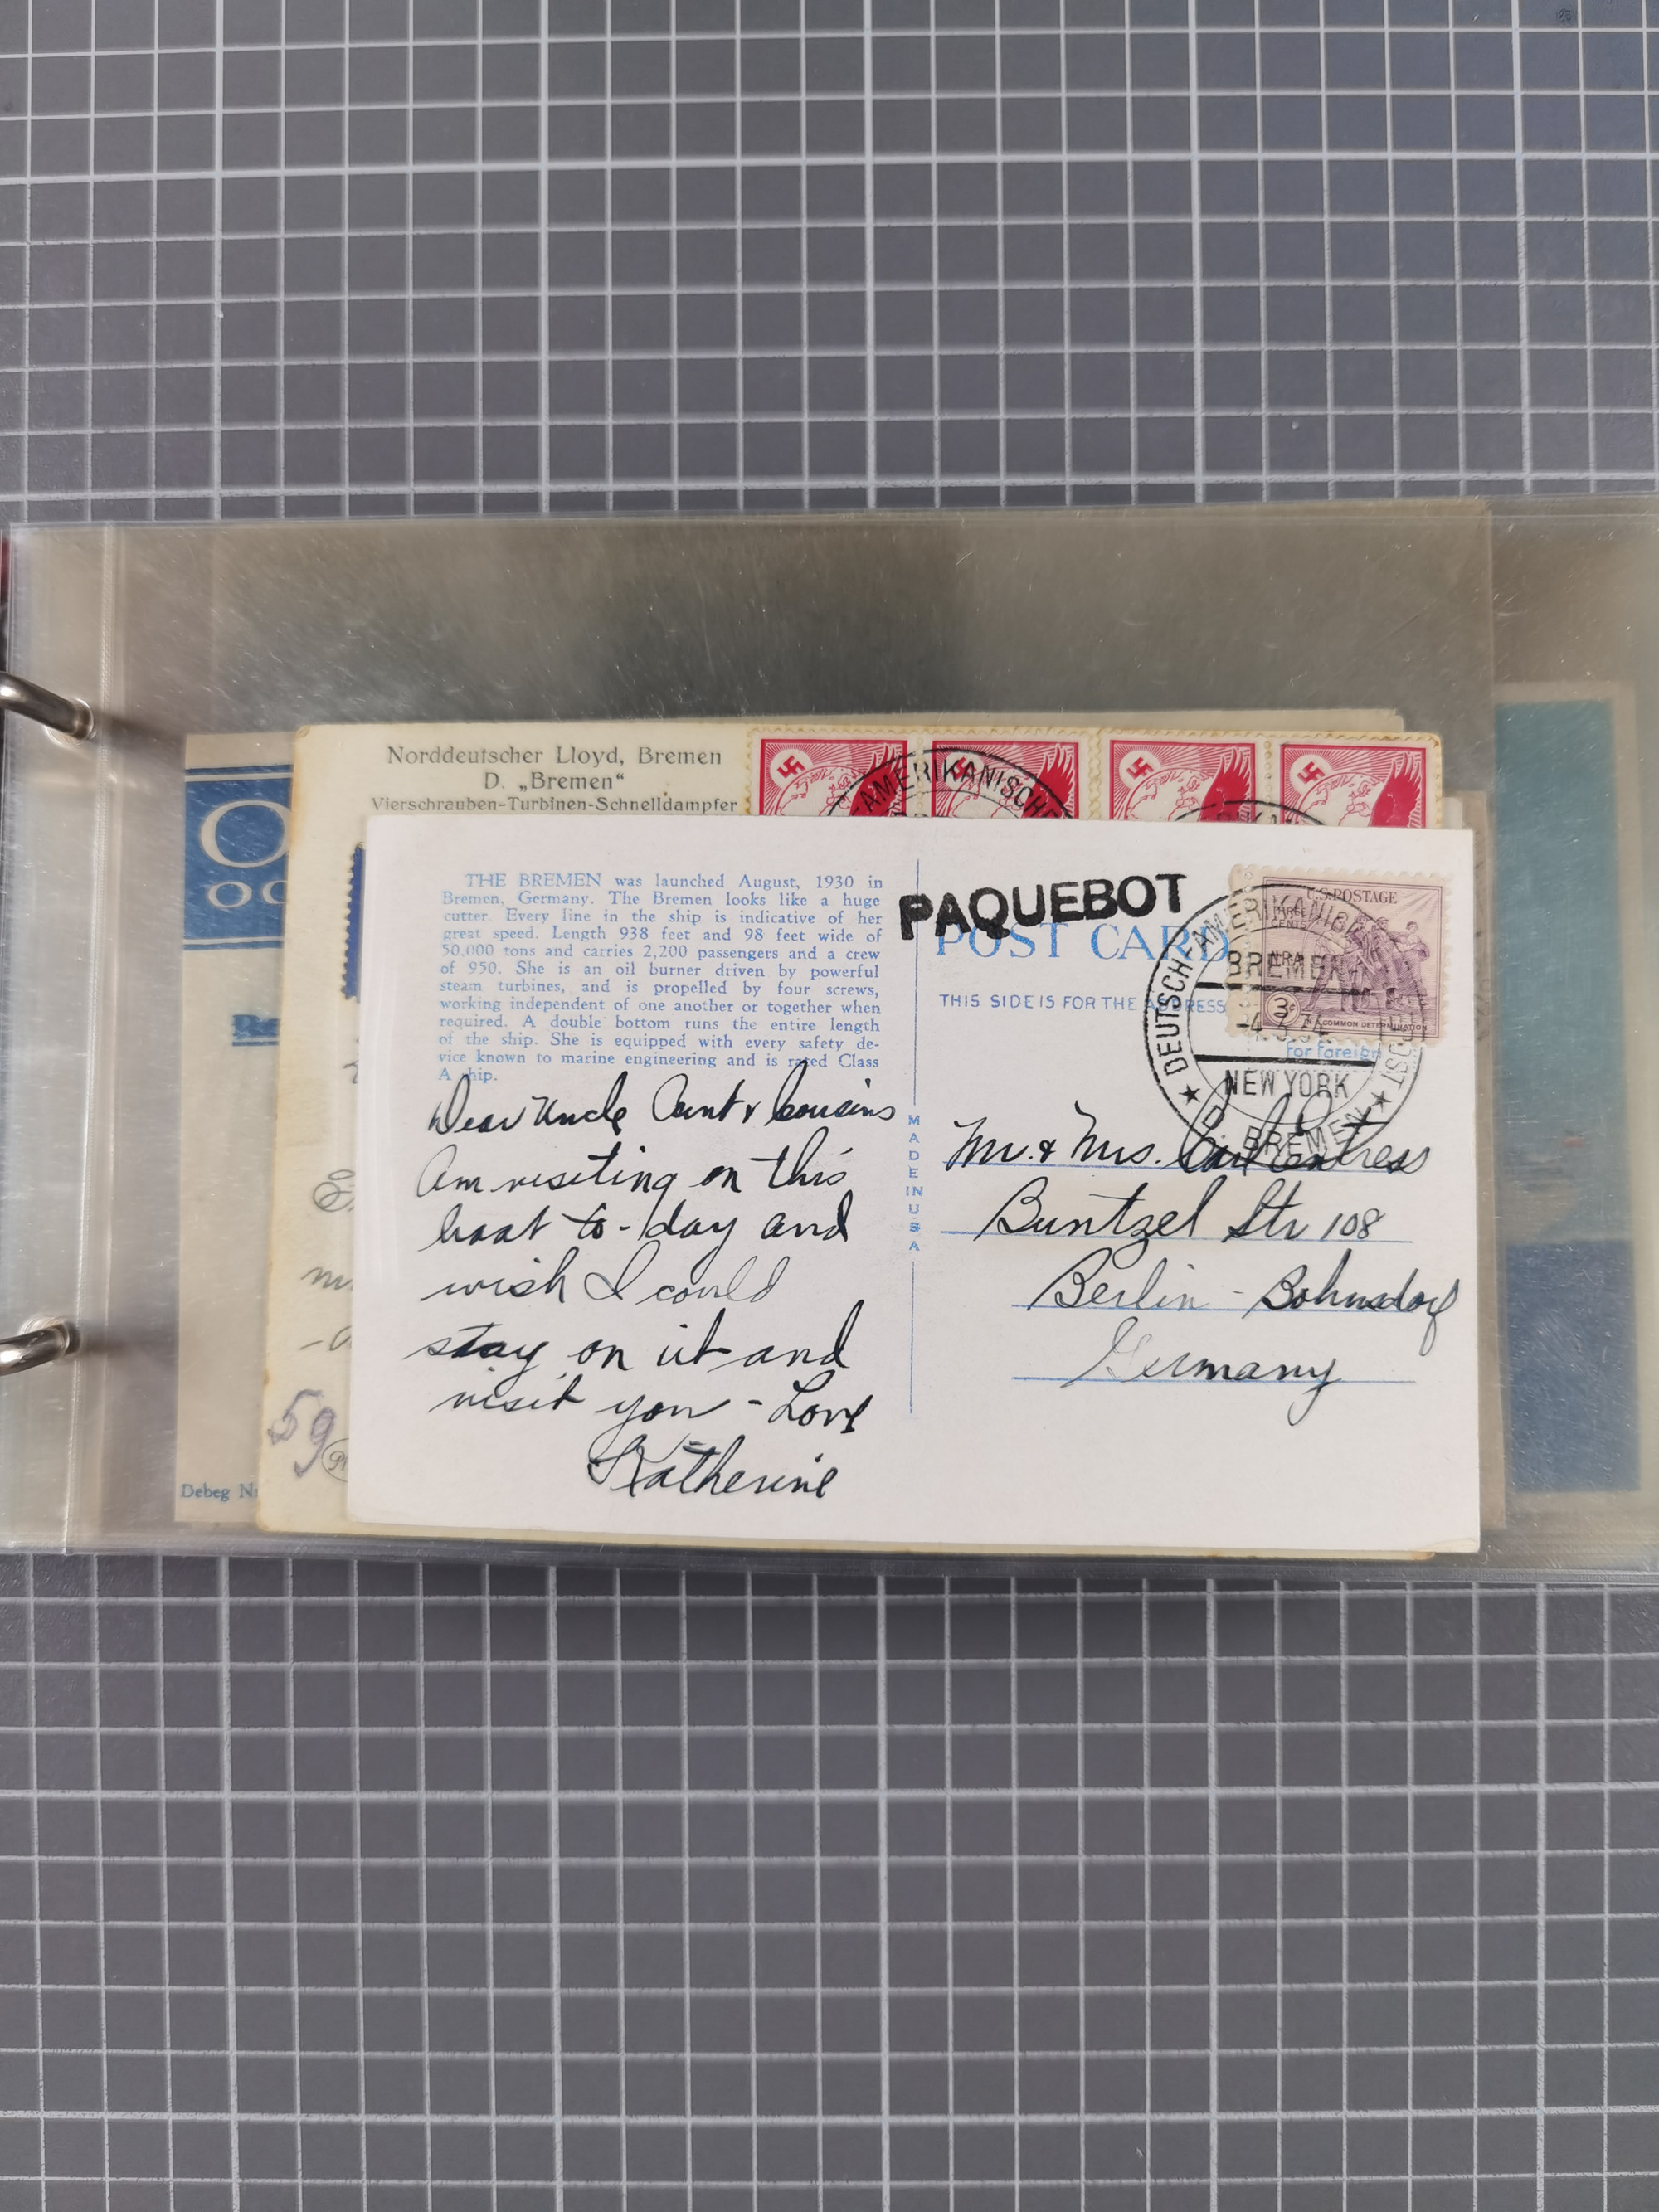 Norddeutscher Lloyd, Bremen
D. „Bremen“
Vierschrauben-Turbinen-Schnelldampfer
AMERIKANISCHE
THE BREMEN was launched August, 1930 in
Bremen, Germany. The Bremen looks like a huge
cutter. Every line in the ship is indicative of her
great speed. Length 938 feet and 98 feet wide of
50,000 tons and carries 2,200 passengers and a crew
of 950. She is an oil burner driven by powerful
steam turbines, and is propelled by four screws,
working independent of one another or together when
required. A double bottom runs the entire length
of the ship. She is equipped with every safety de-
vice known to marine engineering and is rated Class
A ship.
Dear Uncle Aunt & Cousins
Am visiting on this
boat to-day and
wish I could
stay on it and
visit you - Love
Katherine
MADE IN USA
PAQUEBOT
POST CARD
THIS SIDE IS FOR THE ADDRESS
U.S. POSTAGE
THREE
CENTS
N.R.A.
3¢
COMMON DETERMINATION
For Foreign
★ DEUTSCH-AMERIKANISCHE POST ★
BREMEN
NEW YORK
BREMEN
Mr. & Mrs. Carl Entress
Buntzel Str 108
Berlin - Bohnsdorf
Germany
59
Debeg N